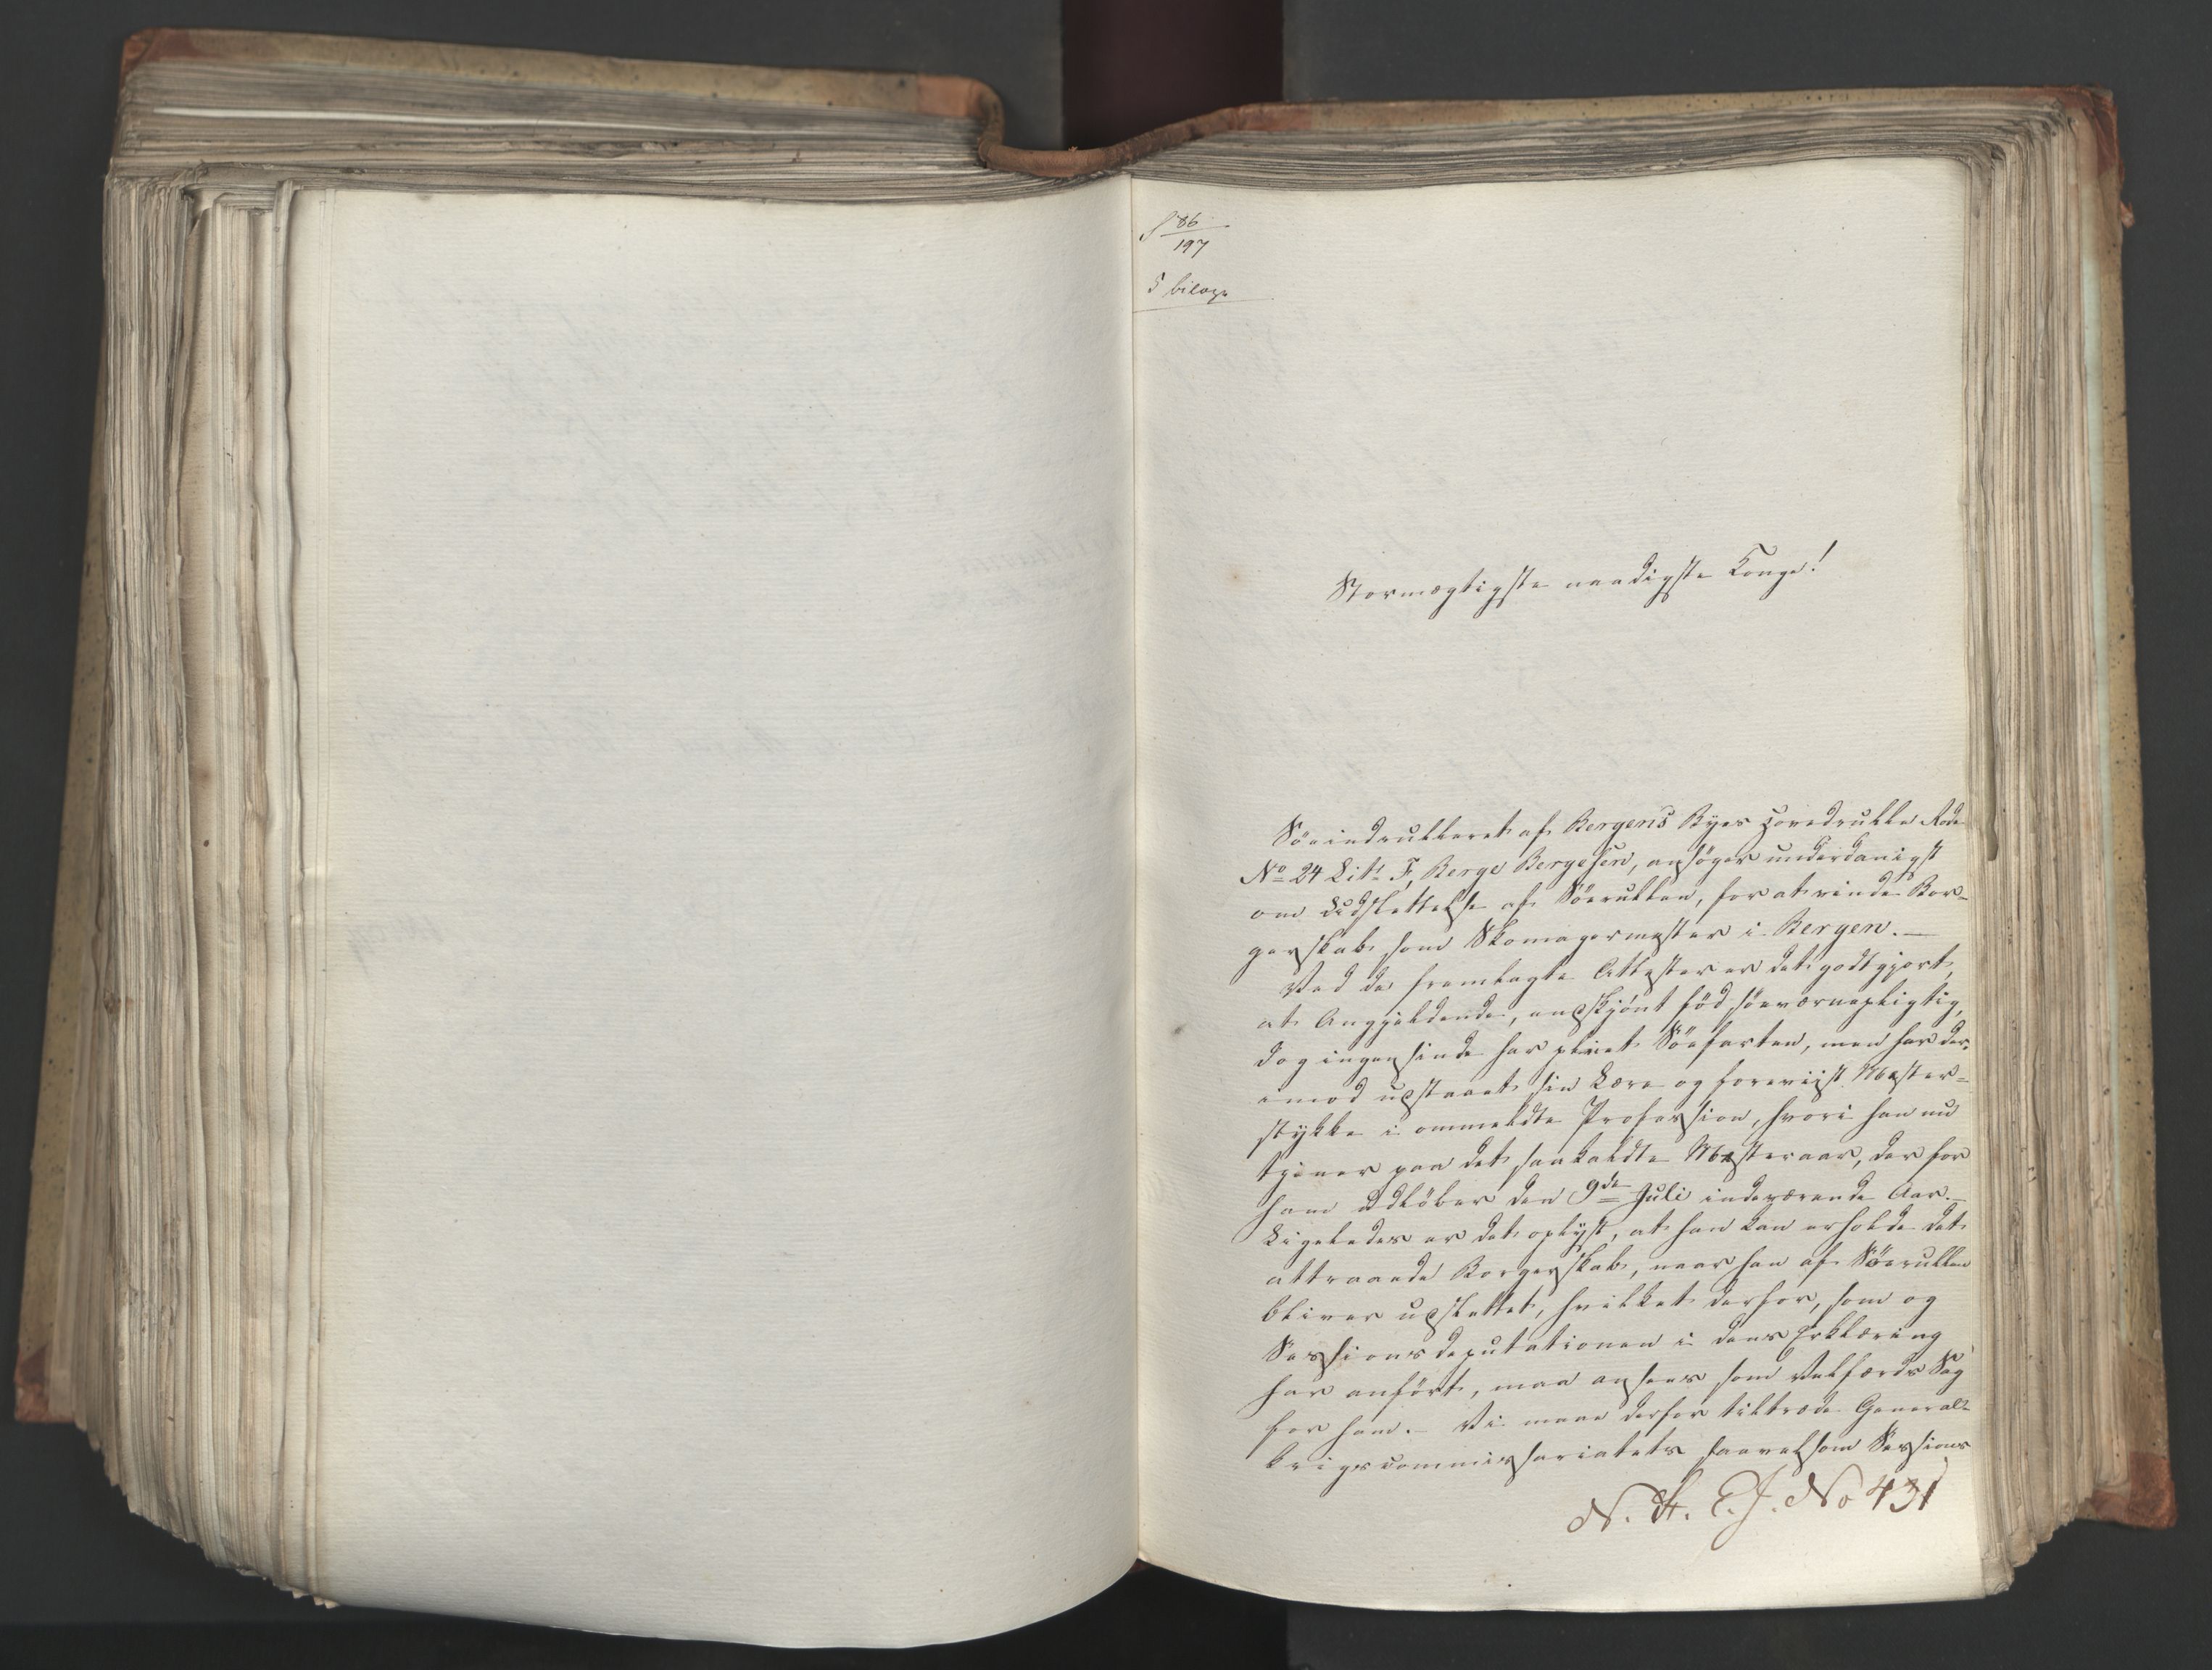 S 86
197
5 bilage
Stormægtigste naadigste Konge!
Söeindrulleret af Bergens Byes Hovedrulle Rode
No 24 Litr F, Berge Bergesen, ansöger underdanigst
om Udslettelse af Söerullen, for at vinde Bor-
gerskab som Skomagermester i Bergen. —
Ved de fremlagte Attester er det godtgjort,
at Angjeldende, endskjönt föd söeværnepligtig,
dog ingensinde har pleiet Söefarten, men har der-
imod udstaaet sin Lære og foreviist Mester=
stykke i ommeldte Profession, hvori han nu
tjener paa det saakaldte Mesteraar, der for
ham udlöber den 9de Juli indeværende Aar. —
Ligeledes er det oplyst, at han kan erholde det
attraaede Borgerskab, naar han af Söerullen
bliver udslettet, hvilket derfor, som og
Sessionsdeputationen i dens Erklæring
har anfört, maa ansees som Velfærds Sag
for ham. — Vi maae derfor tiltræde General-
krigscommissariatets saavelsom Sessions
N. A. E. J. No 431